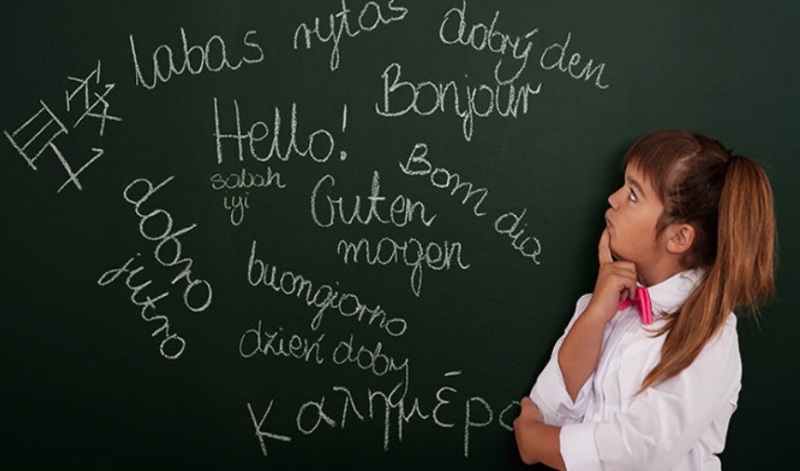 labas rytas
dobrý den
Bonjour
Hello!
Bom dia
sabah
iyi
Guten
morgen
dobro
jutro
buongiorno
dzień doby
Καλημέρα